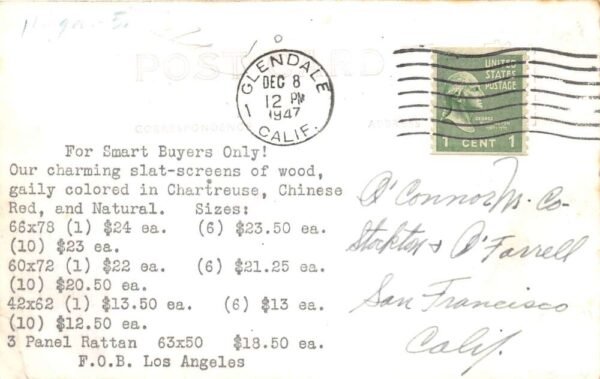 POST CARD
GLENDALE
DEC 8
12 PM
1947
1
CALIF.
UNITED
STATES
POSTAGE
GEORGE
1 CENT 1
CORRESPONDENCE
For Smart Buyers Only!
Our charming slat-screens of wood,
gaily colored in Chartreuse, Chinese
Red, and Natural. Sizes:
66x78 (1) $24 ea. (6) $23.50 ea.
(10) $23 ea.
60x72 (1) $22 ea. (6) $21.25 ea.
(10) $20.50 ea.
42x62 (1) $13.50 ea. (6) $13 ea.
(10) $12.50 ea.
3 Panel Rattan 63x50 $18.50 ea.
F.O.B. Los Angeles
O'Connor M. Co-
Stockton & O'Farrell
San Francisco
Calif.